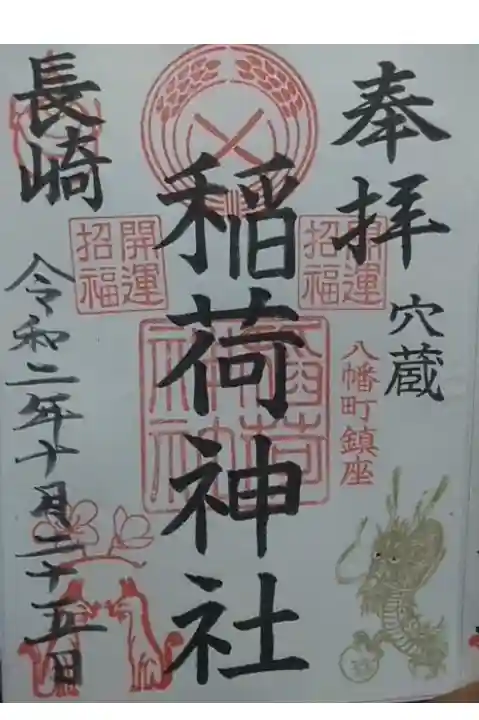 奉拝
穴蔵
八幡町鎮座
開運
招福
稲荷神社
稲荷
神社
開運
招福
長崎
令和二年十月二十五日